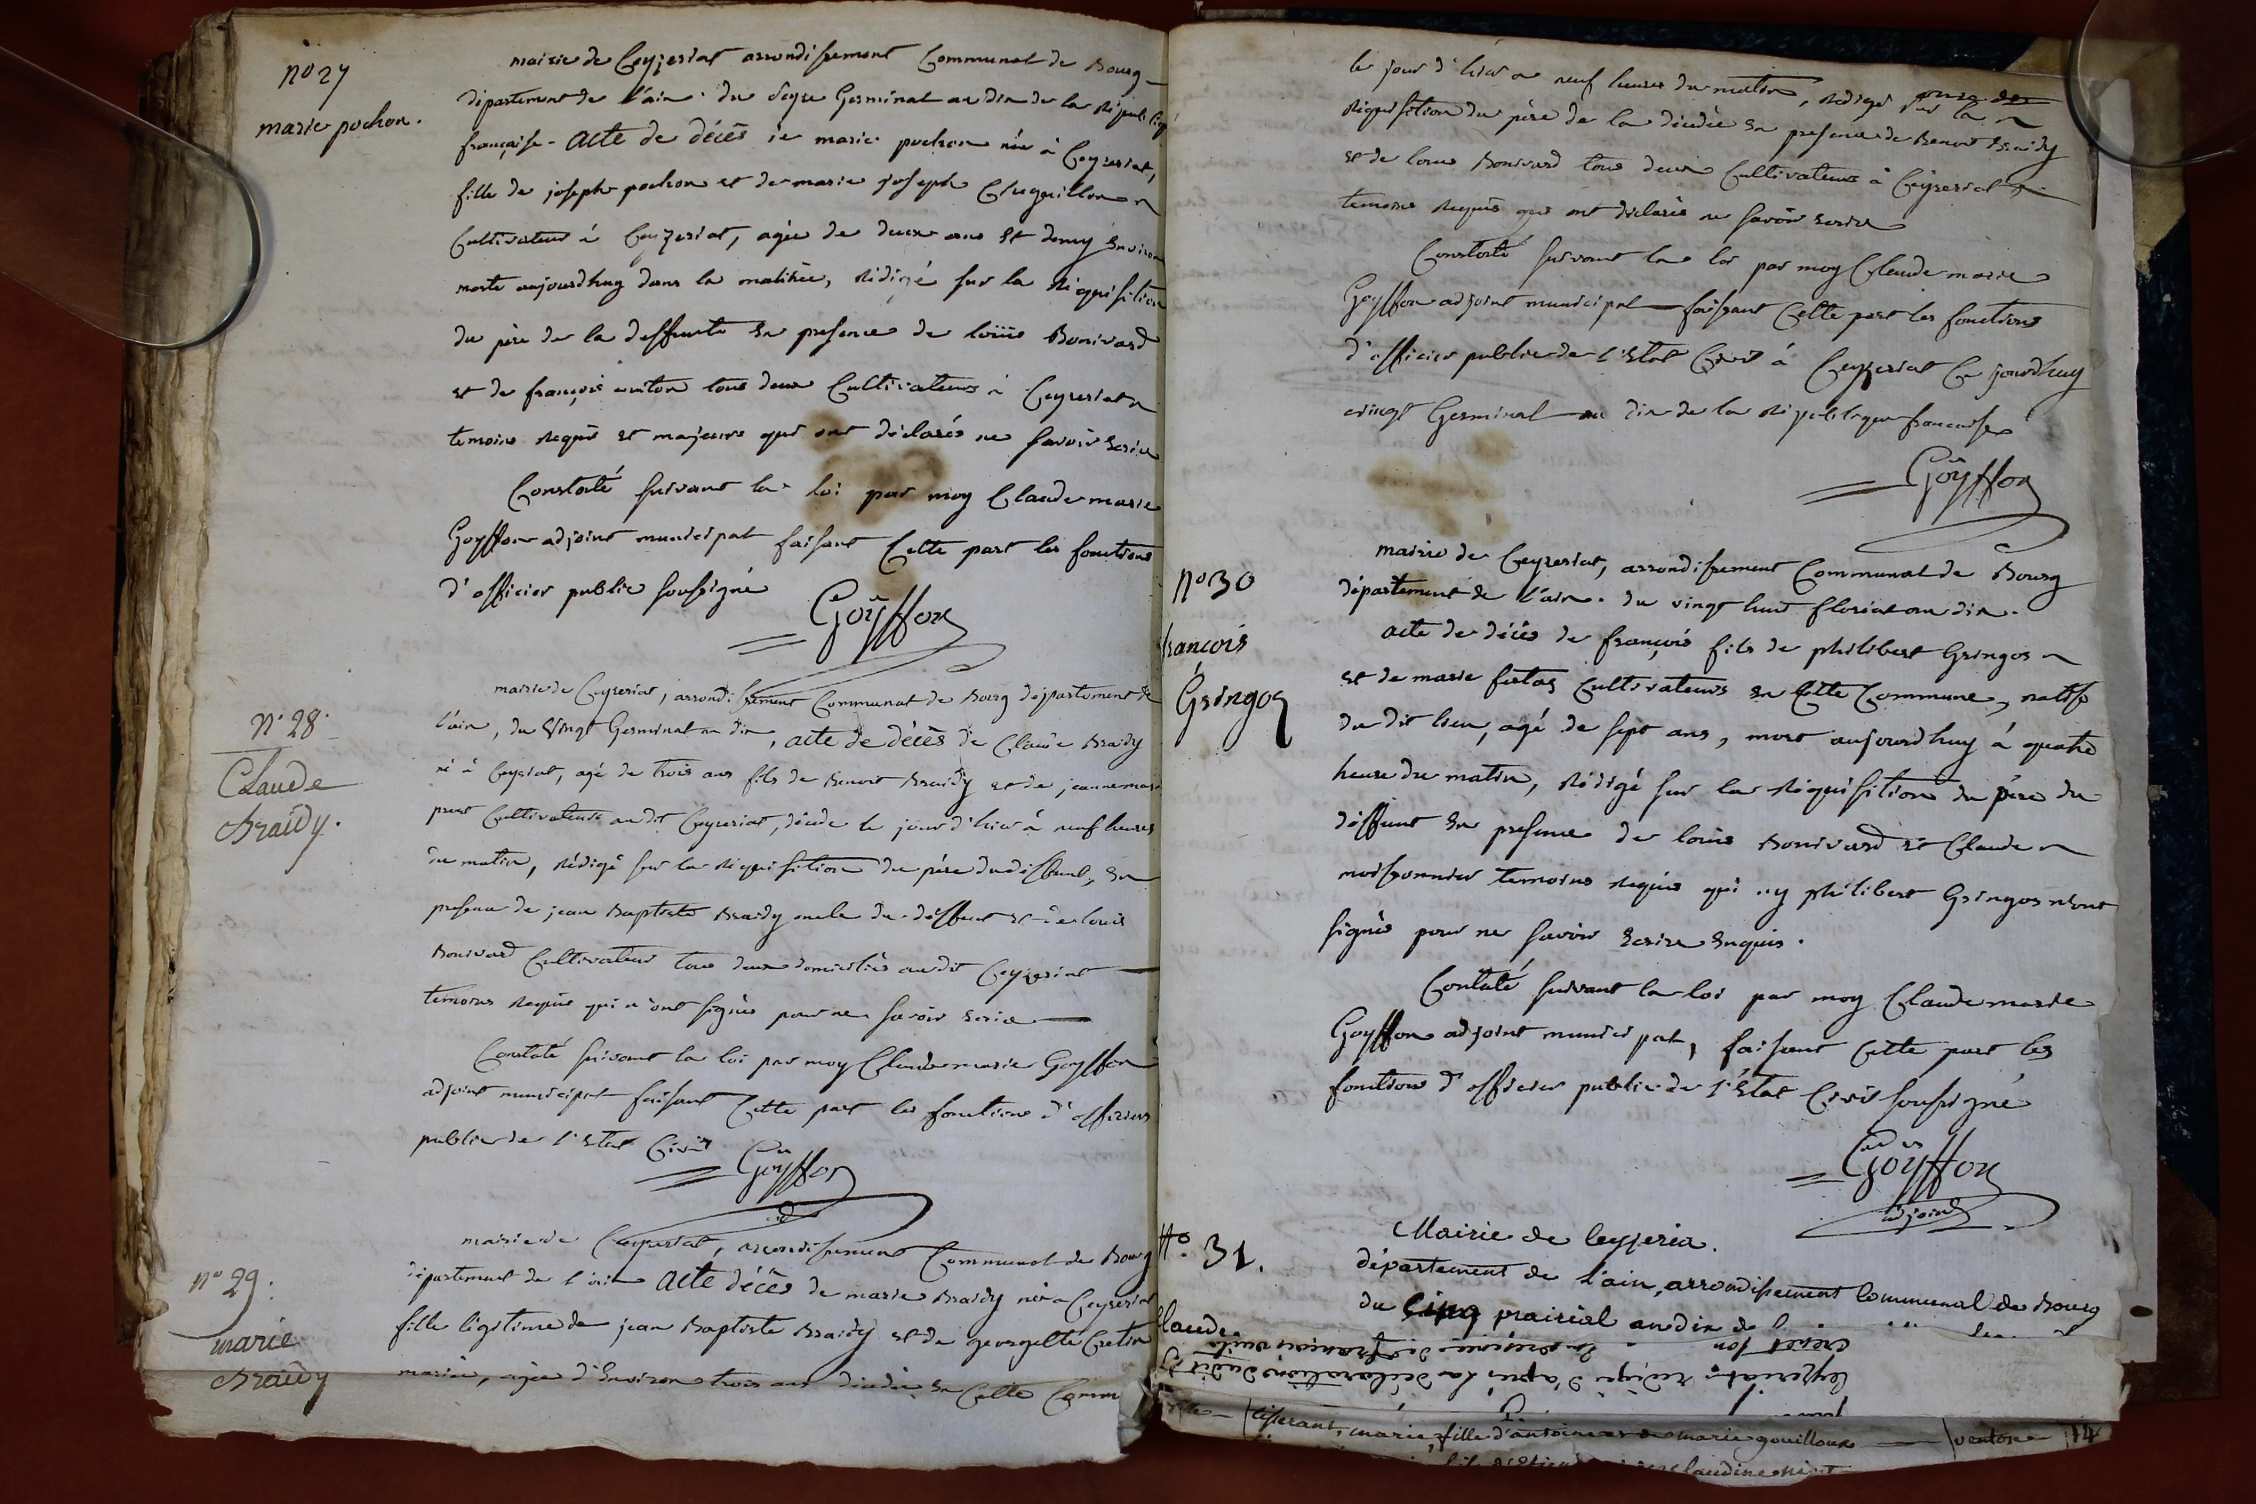 no 27
marie pochon.
mairie de Ceyzeriat arrondissement Communal de Bourg
département de l'ain. du seize Germinal an dix de la Républiq
française. Acte de décès de marie pochon née à Ceyzeriat,
fille de joseph pochon et de marie joseph Chuguillon
Cultivateur à Ceyzeriat, agée de deux ans et demy Environ
morte aujourdhuy dans la matinée, Rédigé sur la Réquisition
du père de la deffunte En présence de loüis Bonivard
et de françois tous deux Cultivateurs à Ceyzeriat
temoins Requis et majeurs qui ont déclarés ne savoir Ecrire
Constaté suivant la loi par moy Claude marie
Goyffon adjoint municipal faisant Cette part les fonctions
d'officier public soussigné
Goÿffon
n° 28.
Claude
Braidy.
mairie de Ceyzeriat, arrondissement Communal de Bourg département de
l'ain, du Vingt Germinal an dix, acte de décès de Claude Braidy
né à Ceyziat, agé de trois ans fils de Benoit Braidy et de jeanne marie
Cultivateurs au dit Ceyzeriat, décédé le jour d'hier à neuf heures
du matin, Rédigé sur la Requisition du père du deffunt, En
presence de jean Baptiste Braidy oncle du deffunt et de louis
Bonivard Cultivateur tous deux domiciliés au dit Ceyzeriat
temoins Requis qui n'ont signés pour ne savoir Ecrire
Constaté suivant la loi par moy Claude marie Goyffon
adjoint municipal faisant Cette part les fonctions d'officier
public de l'Etat Civil
Goÿffon
adj
n° 29.
marie
Braidy
mairie de Ceyzeriat, arrondissement Communal de Bourg
département de l'ain Acte décès de marie Braidy née a Ceyzeriat
fille légitime de jean Baptiste Braidy et de georgette Cretin
mariés, agée d'Environ trois ans décédée En Cette Comm
le jour d'hier a neuf heures du matin, Rédigé sur la
Réquisition du père de la décédée En presence de Benoit Braidy
et de louis Bonivard tous deux Cultivateurs à Ceyzeriat
temoins Requis qui ont déclarés ne savoir Ecrire
Constaté suivant la loi par moy Claude marie
Goyffon adjoint municipal faisant Cette part les fonctions
d'officier public de l'Etat Civil à Ceyzeriat Ce jourdhuy
vingt Germinal an dix de la République francaise
Goÿffon
no 30
françois
Gringoz
mairie de Ceyzeriat, arrondissement Communal de Bourg
département de l'ain. du vingt huit floréal an dix.
acte de décès de françois fils de philibert Gringos
et de marie Cultivateurs En Cette Commune, natif
du dit lieu, agé de sept ans, mort aujourdhuy à quatre
heure du matin, Rédigé sur la Réquisition du père du
déffunt En presence de louis Bonivard et Claude
moissonnier temoins Requis qui ny philibert Gringos n'ont
signés pour ne savoir Ecrire Enquis.
Contaté suivant la loi par moy Claude marie
Goyffon adjoint municipal, faisant Cette part les
fonctions d'officier public de l'Etat Civil soussigné
Goÿffon
adjoint
No. 31.
Claude
Mairie de Ceyzeria.
département de l'ain, arrondissement Communal de Bourg
du Cinq prairial an dix de
en présence de françois
Ceyzeriat Rédigé d'après la déclaration du dit
tisserant, marie, fille d'antoine et de marie gouilloux ventose 14